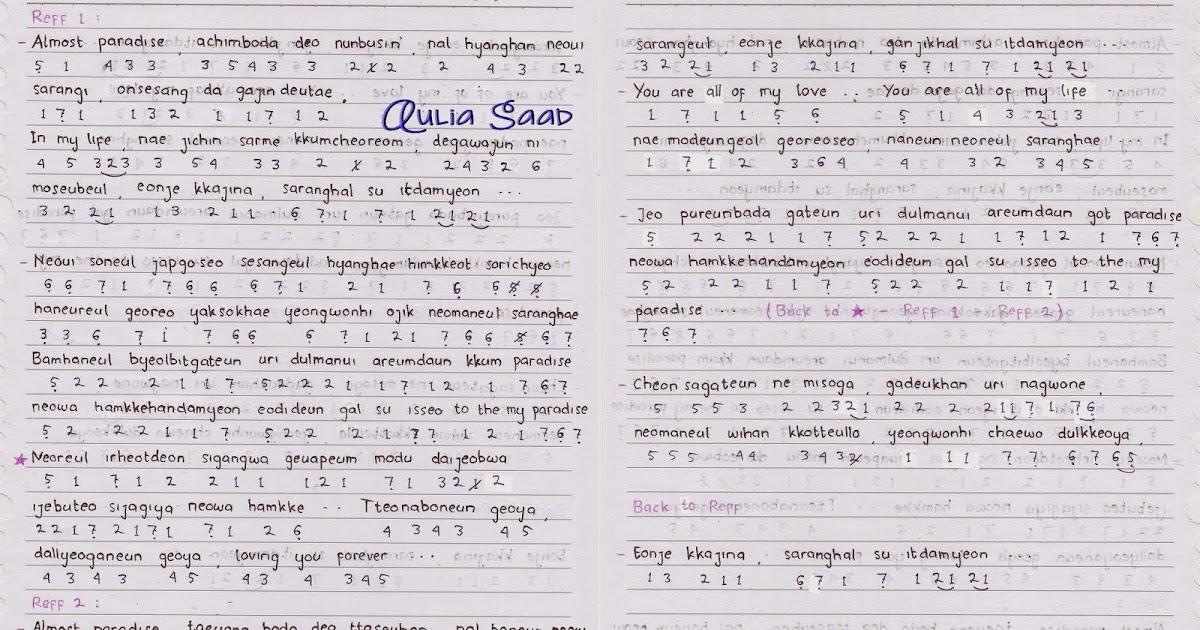 Reff 1 :
- Almost paradise, achimboda deo nunbusin' nal hyanghan neoui
5 1 4 3 3 3 5 4 3 3 2 2 2 4 3 2 2
sarangi, onsesang da gajin deutae,
1 7 1 1 3 2 1 1 7 1 2
AULIA SAAD
In my life, nae jichin sarme kkumcheoreom, degawajun ni
4 5 3 2 3 3 5 4 3 3 2 2 2 4 3 2 6
moseubeul, eonje kkajina, saranghal su itdamyeon ...
3 2 2 1 1 3 2 1 1 6 7 1 7 1 2 1 2 1
- Neoui soneul japgoseo sesangeul hyanghae himkkeot sorichyeo
6 6 7 1 7 6 6 6 7 1 2 1 7 6 6
haneureul georeo yaksokhae yeongwonhi ojik neomaneul saranghae
3 3 6 7 1 7 6 6 6 7 1 2 1 7 6 6 6 7
Bamhaneul byeolbitgateun uri dulmanui areumdaun kkum paradise
5 2 2 2 1 1 7 5 2 2 2 1 1 7 1 2 1 7 6 7
neowa hamkkehandamyeon eodideun gal su isseo to the my paradise
5 2 2 2 1 1 7 5 2 2 1 2 1 7 7 1 2 1 7 6 7
★ Neoreul irheotdeon sigangwa geuapeum modu daijeobwa
5 1 7 1 2 2 1 1 1 2 1 7 1 3 2 2
ijebuteo sijagiya neowa hamkke .. Tteonaboneun geoya,
2 2 1 7 2 1 7 1 7 1 2 6 4 3 4 3 4 5
dallyeoganeun geoya, loving you forever ...
4 3 4 3 4 5 4 3 4 3 4 5
Reff 2 :
- Almost paradise
sarangeul, eonje kkajina, ganjikhal su itdamyeon ...
3 2 2 1 1 3 2 1 1 6 7 1 7 1 2 1 2 1
- You are all of my love .. You are all of my life
1 7 1 1 5 6 5 1 1 4 3 2 1 3
nae modeungeol georeoseo, naneun neoreul saranghae
1 7 1 2 3 6 4 4 3 2 3 4 3 5
- Jeo pureunbada gateun uri dulmanui areumdaun got paradise
5 2 2 2 1 1 7 5 2 2 2 1 1 7 1 2 1 7 6 7
neowa hamkkehandamyeon eodideun gal su isseo to the my
5 2 2 2 1 1 7 5 2 2 2 1 1 7 1 2 1
paradise ... (Back to ★ - Reff 1 - Reff 2)
7 6 7
- Cheonsagateun ne misoga, gadeukhan uri nagwone
5 5 5 3 2 2 3 2 1 2 2 2 2 1 1 7 1 7 6
neomaneul wihan kkotteullo, yeongwonhi chaewo dulkkeoya,
5 5 5 4 4 3 4 3 1 1 1 7 7 6 7 6 5
Back to Reff
- Eonje kkajina, saranghal su itdamyeon
1 3 2 1 1 6 7 1 7 1 2 1 2 1